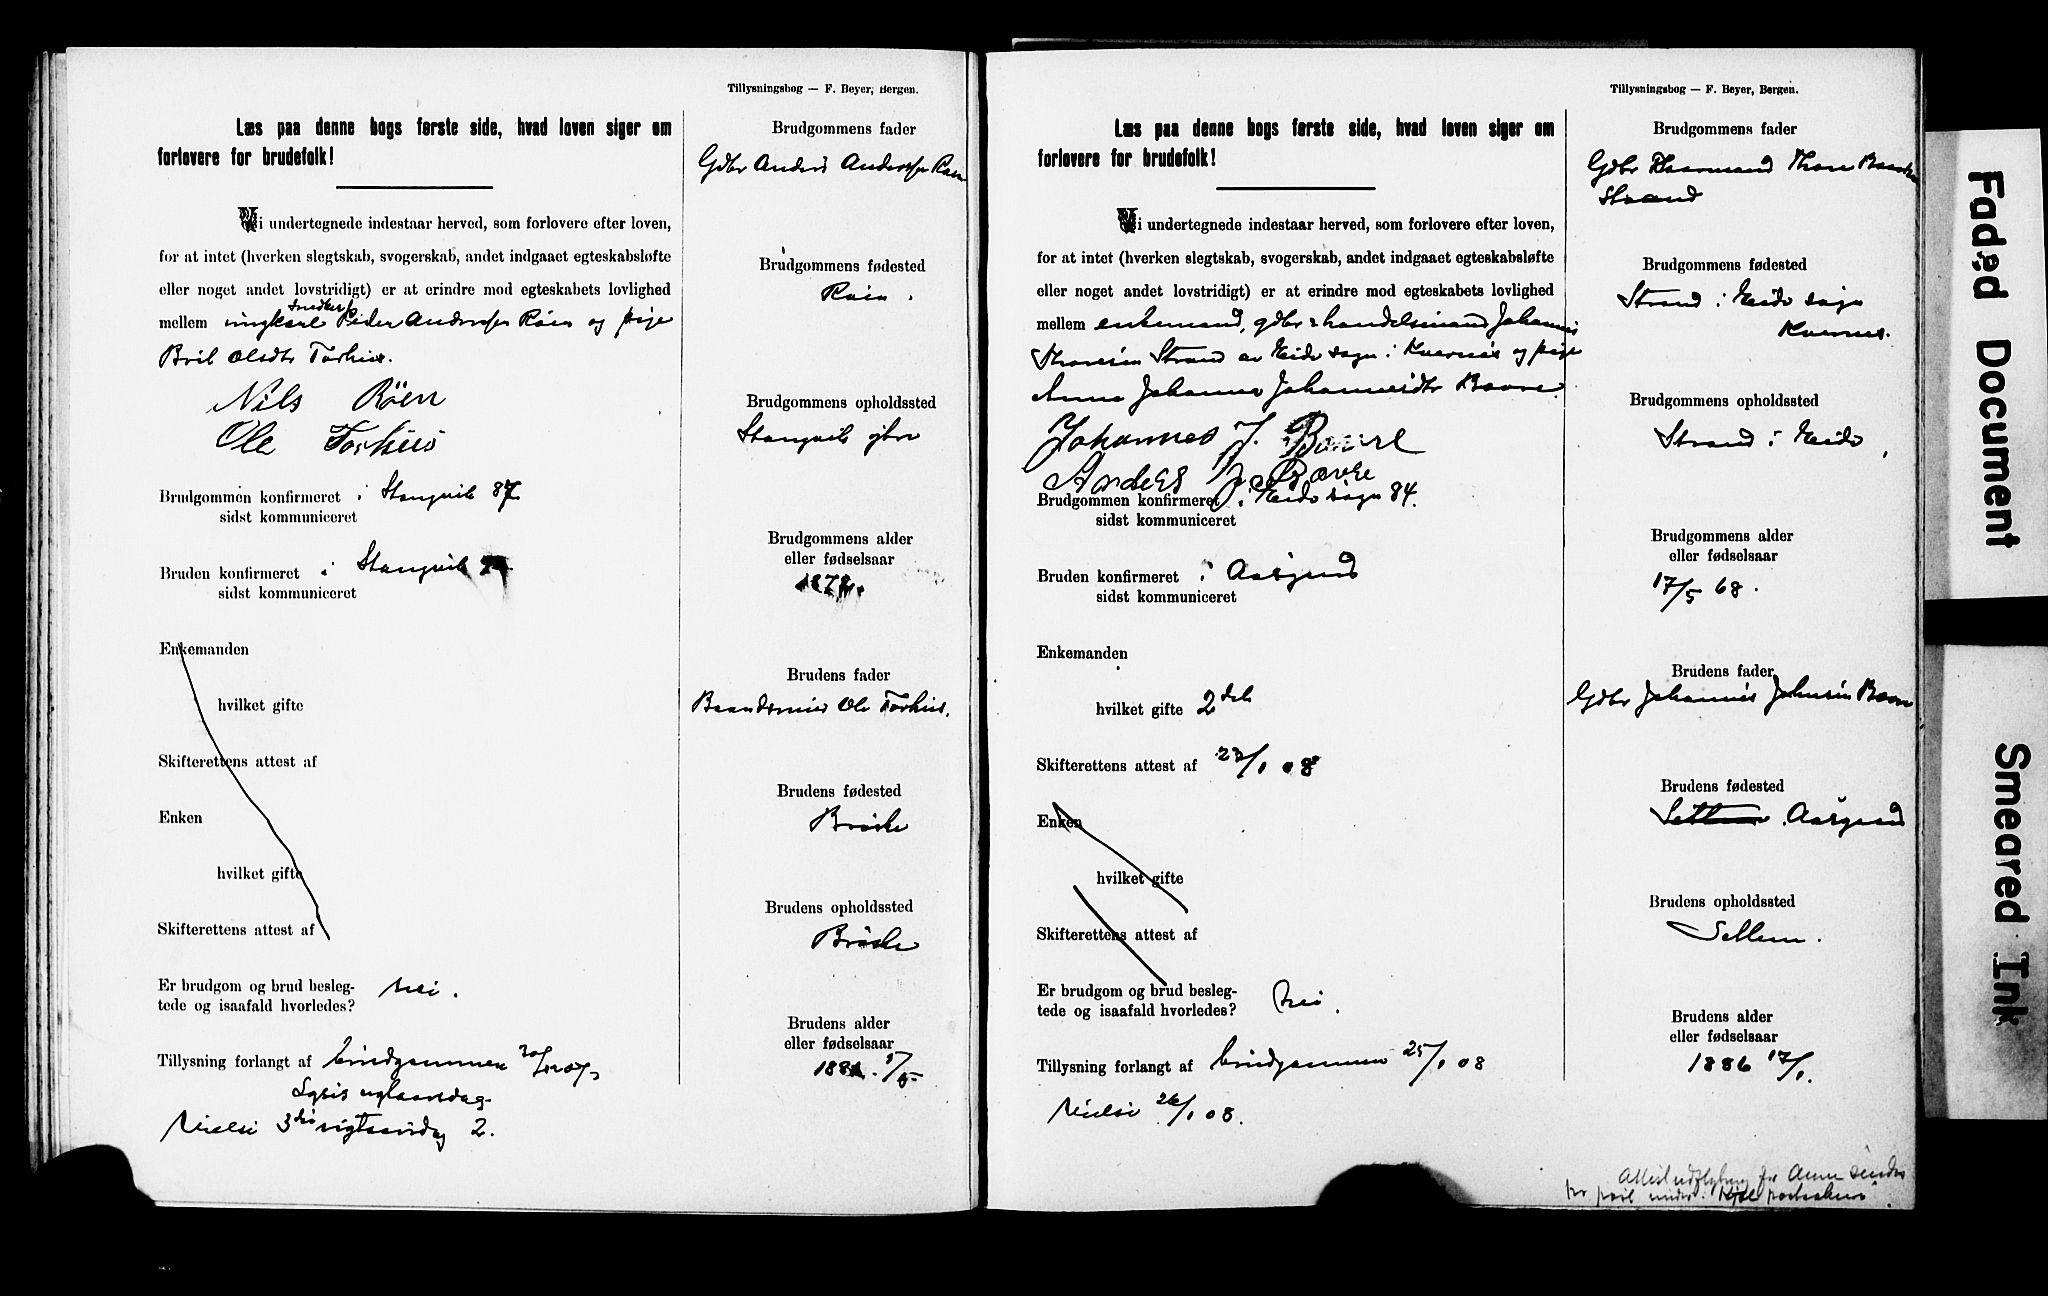 Tillysningsbog — F. Beyer, Bergen.
Læs paa denne bogs første side, hvad loven siger om
forlovere for brudefolk!
Vi undertegnede indestaar herved, som forlovere efter loven,
for at intet (hverken slegtskab, svogerskab, andet indgaaet egteskabsløfte
eller noget andet lovstridigt) er at erindre mod egteskabets lovlighed
mellem ungkarl Peder Andersen Røen og pige
Olsdtr Torhus.
Nils Røen
Ole Torhus
Brudgommen konfirmeret i Stangvik 87
sidst kommuniceret
Bruden konfirmeret i Stangvik
sidst kommuniceret
Enkemanden
hvilket gifte
Skifterettens attest af
Enken
hvilket gifte
Skifterettens attest af
Er brudgom og brud besleg-
tede og isaafald hvorledes? nei.
Tillysning forlangt af brudgommen
2.
Brudgommens fader
Gdbr Anders Andersen Røen
Brudgommens fødested
Røen.
Brudgommens opholdssted
Stangvik
Brudgommens alder
eller fødselsaar
Brudens fader
Ole Torhus.
Brudens fødested
Brøske
Brudens opholdssted
Brøske
Brudens alder
eller fødselsaar
Tillysningsbog — F. Beyer, Bergen.
Læs paa denne bogs første side, hvad loven siger om
forlovere for brudefolk!
Vi undertegnede indestaar herved, som forlovere efter loven,
for at intet (hverken slegtskab, svogerskab, andet indgaaet egteskabsløfte
eller noget andet lovstridigt) er at erindre mod egteskabets lovlighed
mellem enkemand, gdbr & handelsmand Johannes
Thoresen Strand av Eide sogn i Kvernes og pige
Anne Johanna Johannesdtr Bævre.
Johannes J. Bævre
Anders J. Bævre
Brudgommen konfirmeret i Eide sogn 84.
sidst kommuniceret
Bruden konfirmeret i Aasgard
sidst kommuniceret
Enkemanden
hvilket gifte 2det
Skifterettens attest af 23/1 08
Enken
hvilket gifte
Skifterettens attest af
Er brudgom og brud besleg-
tede og isaafald hvorledes? nei.
Tillysning forlangt af brudgommen 25/1 08
26/1 08.
Brudgommens fader
Gdbr Thore
Strand
Brudgommens fødested
Strand i Eide sogn
Kvernes.
Brudgommens opholdssted
Strand i Eide
Brudgommens alder
eller fødselsaar
17/5 68.
Brudens fader
Gdbr Johannes Johnsen Bævre
Brudens fødested
Settem Aasgard
Brudens opholdssted
Settem.
Brudens alder
eller fødselsaar
1886 17/1.
for Anne sendes
Faded Document
Smeared Ink